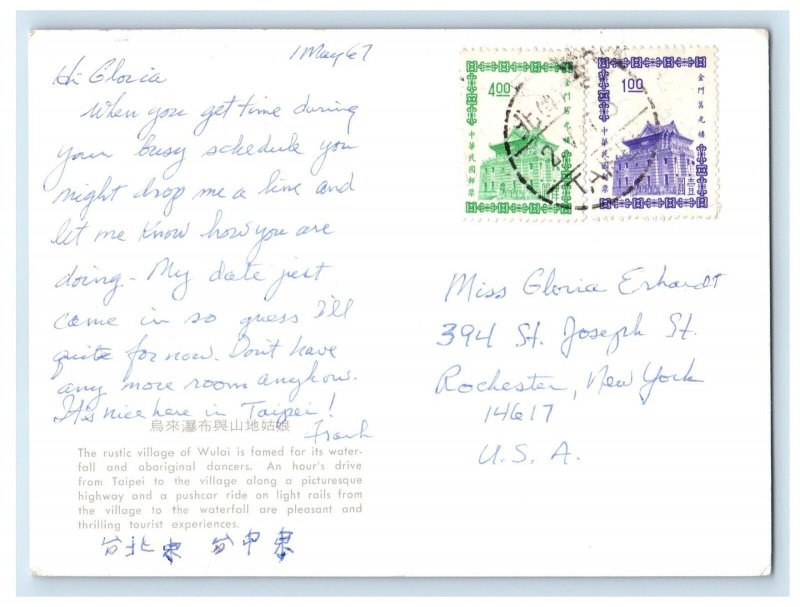 1 May 67
Hi Gloria
When you get time during
your busy schedule you
might drop me a line and
let me know how you are
doing - My date just
came in so guess I'll
quite for now. Dont have
any more room anyhow.
It's nice here in Taipei!
Frank
烏來瀑布與山地姑娘
The rustic village of Wulai is famed for its water-
fall and aboriginal dancers. An hour's drive
from Taipei to the village along a picturesque
highway and a pushcar ride on light rails from
the village to the waterfall are pleasant and
thrilling tourist experiences.
台北東 台中東
4.00
金門莒光樓
中華民國郵票
肆圓
1.00
金門莒光樓
中華民國郵票
壹圓
Miss Gloria Erhardt
394 St. Joseph St.
Rochester, New York
14617
U.S.A.